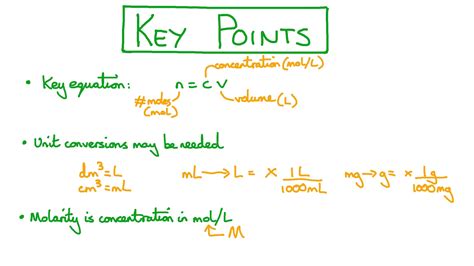 KEY POINTS
concentration (mol/L)
• Key equation: n = c v
# moles (mol)
volume (L)
• Unit conversions may be needed
dm³ = L
cm³ = mL
mL → L = × 1L / 1000mL
mg → g = × 1g / 1000mg
• Molarity is concentration in mol/L
M